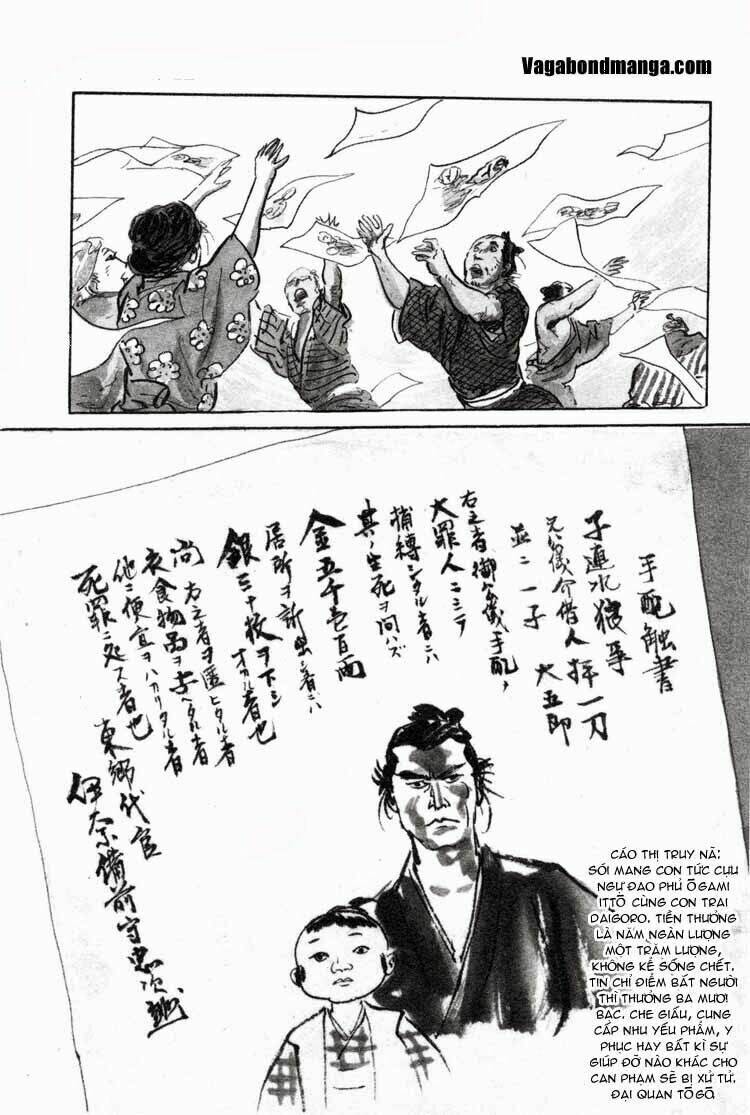 Vagabondmanga.com
手配触書
子連れ狼事
元公儀介借人 拝一刀
並ニ一子 大五郎
右之者、御公儀手配ノ
大罪人ニシテ
捕縛シタル者ニハ
其ノ生死ヲ問ハズ
金五千壱百両
居所ヲ訴出シ者ニハ
銀三十枚ヲ下シ
オカル者也
尚右之者ヲ匿ヒタル者
衣食物品ヲ与ヘタル者
他ニ便宜ヲハカリタル者
死罪ニ処ス者也
東郷代官
伊奈備前守忠次
CÁO THỊ TRUY NÃ:
SÓI MANG CON TỨC CỰU
NGỰ ĐAO PHỦ ŌGAMI
ITTŌ CÙNG CON TRAI
DAIGORO. TIỀN THƯỞNG
LÀ NĂM NGÀN LƯỢNG
MỘT TRĂM LƯỢNG,
KHÔNG KỂ SỐNG CHẾT.
TIN CHỈ ĐIỂM BẮT NGƯỜI
THÌ THƯỞNG BA MƯƠI
BẠC. CHE GIẤU, CUNG
CẤP NHU YẾU PHẨM, Y
PHỤC HAY BẤT KÌ SỰ
GIÚP ĐỠ NÀO KHÁC CHO
CAN PHẠM SẼ BỊ XỬ TỬ.
ĐẠI QUAN TŌGŌ